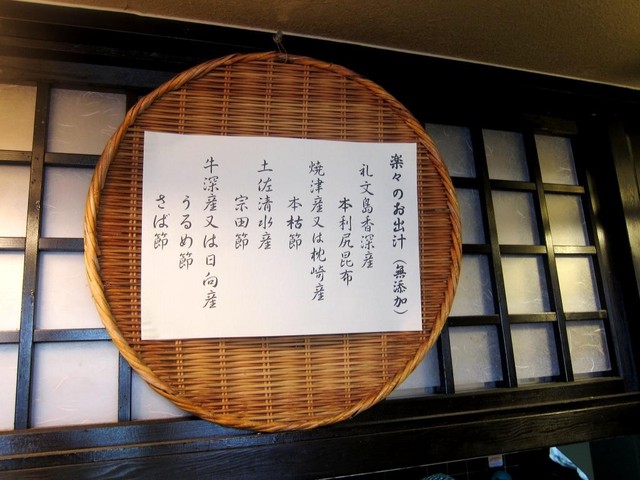 楽々のお出汁（無添加）
礼文島香深産
本利尻昆布
焼津産又は枕崎産
本枯節
土佐清水産
宗田節
牛深産又は日向産
うるめ節
さば節